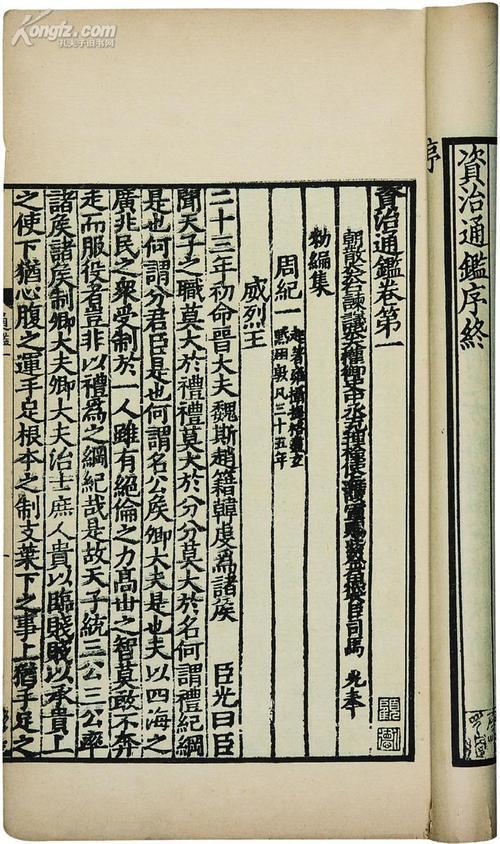 Kongfz.com
孔夫子旧书网
資治通鑑序終
序
資治通鑑卷第一
朝散大夫右諫議大夫權御史中丞充理檢使上護軍賜紫金魚袋臣司馬 光奉
勑編集
周紀一 起著雍攝提格盡玄
黓困敦凡三十五年
威烈王
二十三年初命晉大夫魏斯趙籍韓虔爲諸侯 臣光曰臣
聞天子之職莫大於禮禮莫大於分分莫大於名何謂禮紀綱
是也何謂分君臣是也何謂名公侯卿大夫是也夫以四海之
廣兆民之衆受制於一人雖有絕倫之力高世之智莫敢不奔
走而服役者豈非以禮爲之綱紀哉是故天子統三公三公率
諸侯諸侯制卿大夫卿大夫治士庶人貴以臨賤賤以承貴上
之使下猶心腹之運手足根本之制支葉下之事上猶手足之
通鑑一